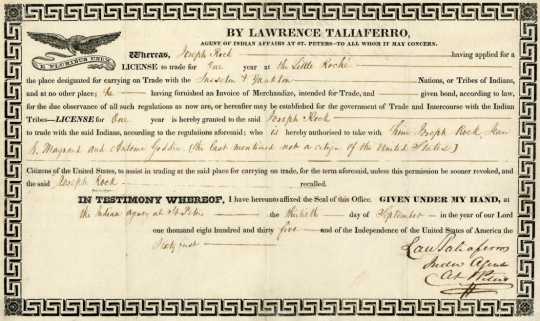 E PLURIBUS UNUM
BY LAWRENCE TALIAFERRO,
AGENT OF INDIAN AFFAIRS AT ST. PETERS—TO ALL WHOM IT MAY CONCERN.
Whereas, Joseph Rock having applied for a
LICENSE to trade for One year at the Little Roche
the place designated for carrying on Trade with the Sisseton & Yankton Nations, or Tribes of Indians,
and at no other place; he having furnished an Invoice of Merchandize, intended for Trade, and given bond, according to law,
for the due observance of all such regulations as now are, or hereafter may be established for the government of Trade and Intercourse with the Indian
Tribes—LICENSE for One year is hereby granted to the said Joseph Rock
to trade with the said Indians, according to the regulations aforesaid; who is hereby authorised to take with him Joseph Rock,
and Antoine (the last mentioned not a citizen of the United States)
Citizens of the United States, to assist in trading at the said place for carrying on trade, for the term aforesaid, unless this permission be sooner revoked, and
the said Joseph Rock recalled.
IN TESTIMONY WHEREOF, I have hereunto affixed the Seal of this Office. GIVEN UNDER MY HAND, at
the Indian Agency at St Peters the thirtieth day of September in the year of our Lord
one thousand eight hundred and thirty five and of the Independence of the United States of America the
Sixtieth
Law Taliaferro
Indian Agent
At St Peters